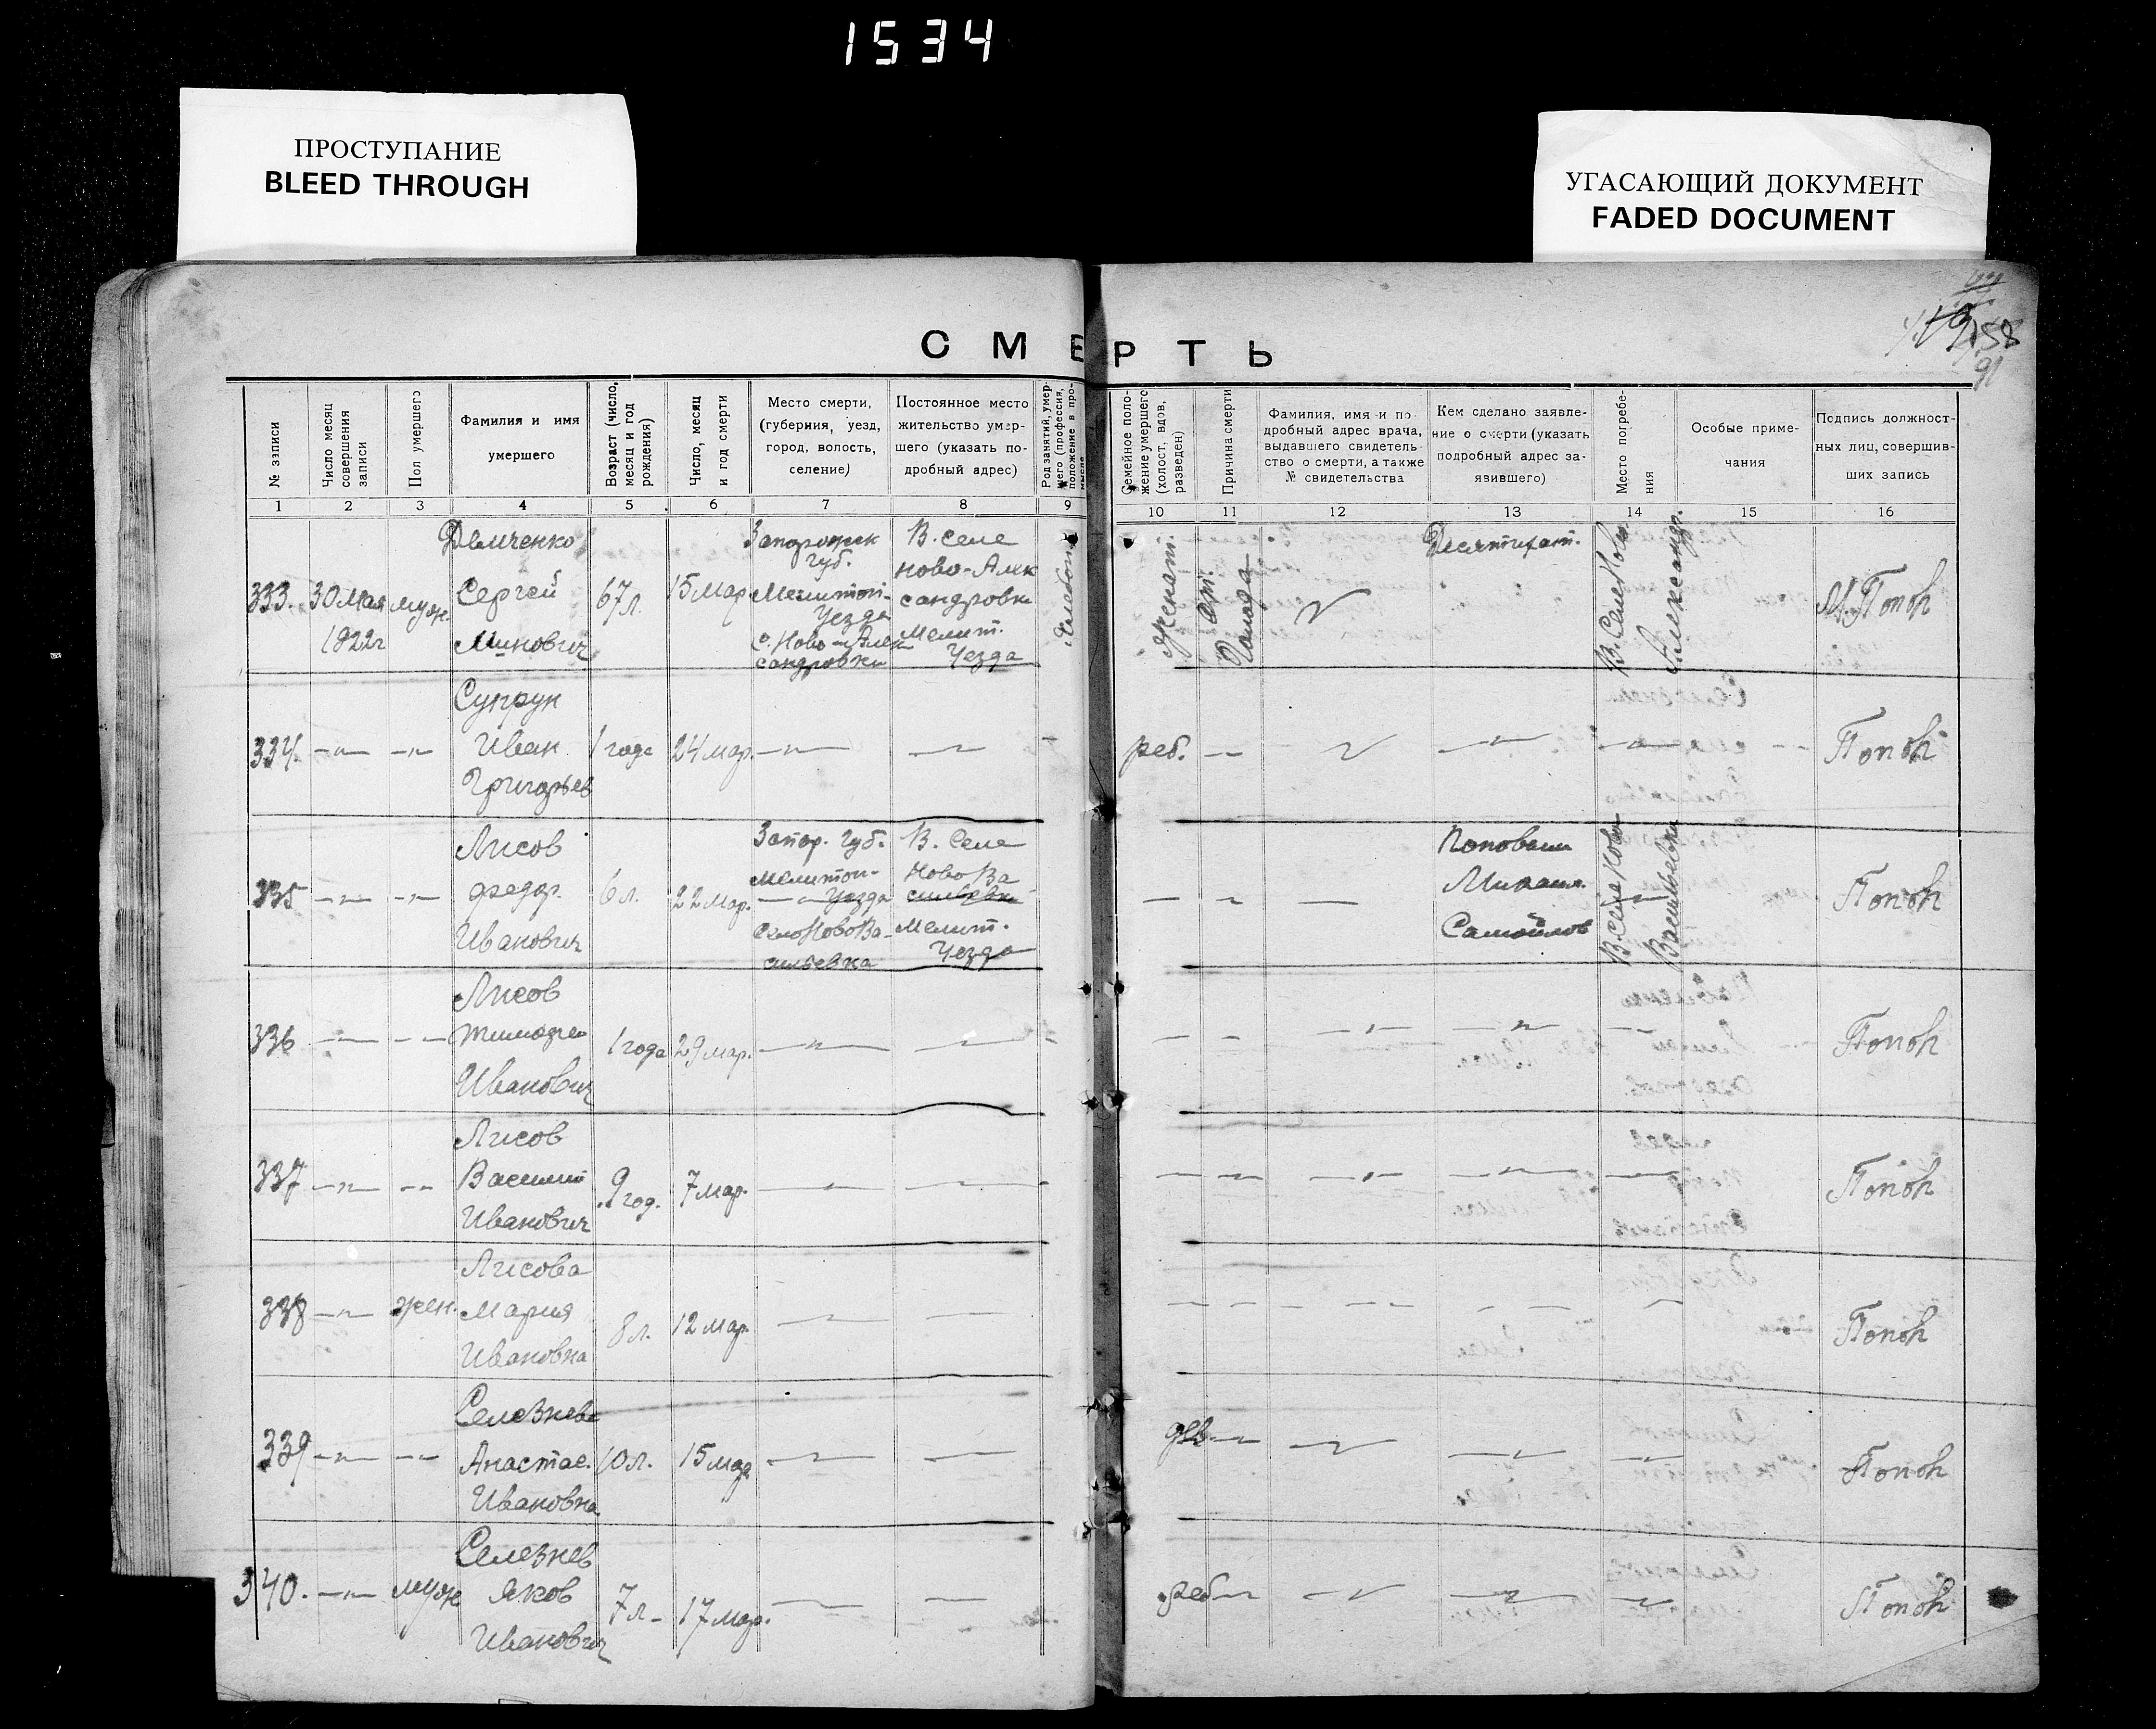 1534
ПРОСТУПАНИЕ
BLEED THROUGH
УГАСАЮЩИЙ ДОКУМЕНТ
FADED DOCUMENT
158
91
СМЕРТЬ
№ записи
Число месяц совершения записи
Пол умершего
Фамилия и имя
умершего
Возраст (число, месяц и год рождения)
Число, месяц и год смерти
Место смерти,
(губерния, уезд,
город, волость,
селение)
Постоянное место
жительство умер-
шего (указать по-
дробный адрес)
Род занятий, умер-
шего (профессия,
положение в про-
Семейное поло-
жение умершего
(холост, вдов,
разведен)
Причина смерти
Фамилия, имя и по-
дробный адрес врача,
выдавшего свидетель-
ство о смерти, а также
№ свидетельства
Кем сделано заявле-
ние о смерти (указать
подробный адрес за-
явившего)
Место погребе-
ния
Особые приме-
чания
Подпись должност-
ных лиц, совершив-
ших запись
1 2 3 4 5 6 7 8 9 10 11 12 13 14 15 16
333. 30 мая 1922г муж.
Демченко
Сергей
Минович
67 л. 15 мар
Запорожск
губ.
Мелитоп-
Уезда
с. Ново-Алек
сандровки
В. селе
Ново-Алек
сандровки
Мелит.
Уезда
женат.
От
голода
В. Селе Ново
Александр.
Попов
334. —"— —"—
Супрун
Иван
Григорьев
1 года 24 мар. —"— —"—
реб. —"— Попов
335 —"— —"—
Лисов
Федор.
Иванович
6 л. 22 мар.
Запор. губ.
Мелитоп-
—"— Уезда
Село Ново Ва-
сильевка
В. Селе
Ново Ва
сильевка
Мелит.
Уезда
Михаил.
Самойлов
В. селе Ново
Васильевка
Попов
336 —"— —"—
Лисов
Тимофей
Иванович
1 года 29 мар. —"— —"—
Попов
337 —"— —"—
Лисов
Василий
Иванович
9 год. 7 мар. —"— —"—
Попов
338 —"— жен.
Лисова
Мария
Ивановна
8 л. 12 мар. —"— —"—
Попов
339 —"— —"—
Селезнева
Анастас.
Ивановна
10 л. 15 мар —"— —"—
дев. —"— Попов
340. —"— муж
Селезнев
Яков
Иванович
7 л- 17 мар. —"— —"—
реб —"— Попов